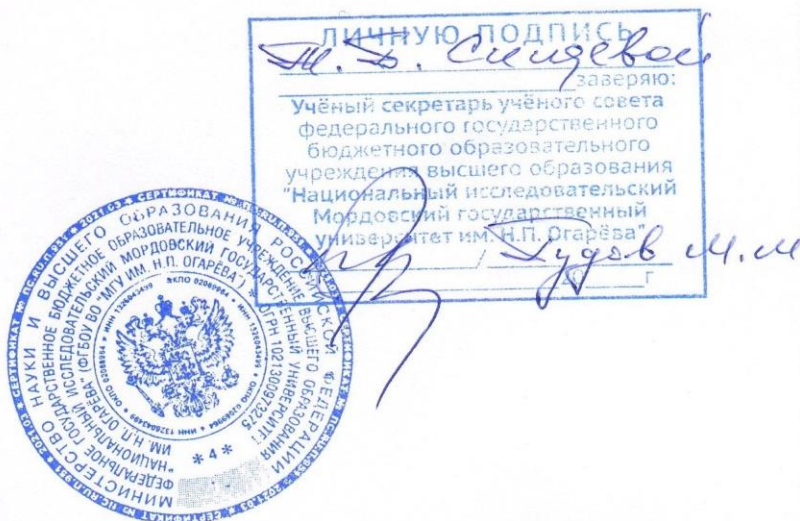 ЛИЧНУЮ ПОДПИСЬ
заверяю:
Учёный секретарь учёного совета
федерального государственного
бюджетного образовательного
учреждения высшего образования
"Национальный исследовательский
Мордовский государственный
университет им. Н.П. Огарёва"
/ Гудов М.М
20 г
МИНИСТЕРСТВО НАУКИ И ВЫСШЕГО ОБРАЗОВАНИЯ РОССИЙСКОЙ ФЕДЕРАЦИИ
ФЕДЕРАЛЬНОЕ ГОСУДАРСТВЕННОЕ БЮДЖЕТНОЕ ОБРАЗОВАТЕЛЬНОЕ УЧРЕЖДЕНИЕ ВЫСШЕГО ОБРАЗОВАНИЯ
"НАЦИОНАЛЬНЫЙ ИССЛЕДОВАТЕЛЬСКИЙ МОРДОВСКИЙ ГОСУДАРСТВЕННЫЙ УНИВЕРСИТЕТ
ИМ. Н.П. ОГАРЁВА" (ФГБОУ ВО "МГУ ИМ. Н.П. ОГАРЁВА") * ОГРН
* 4 *